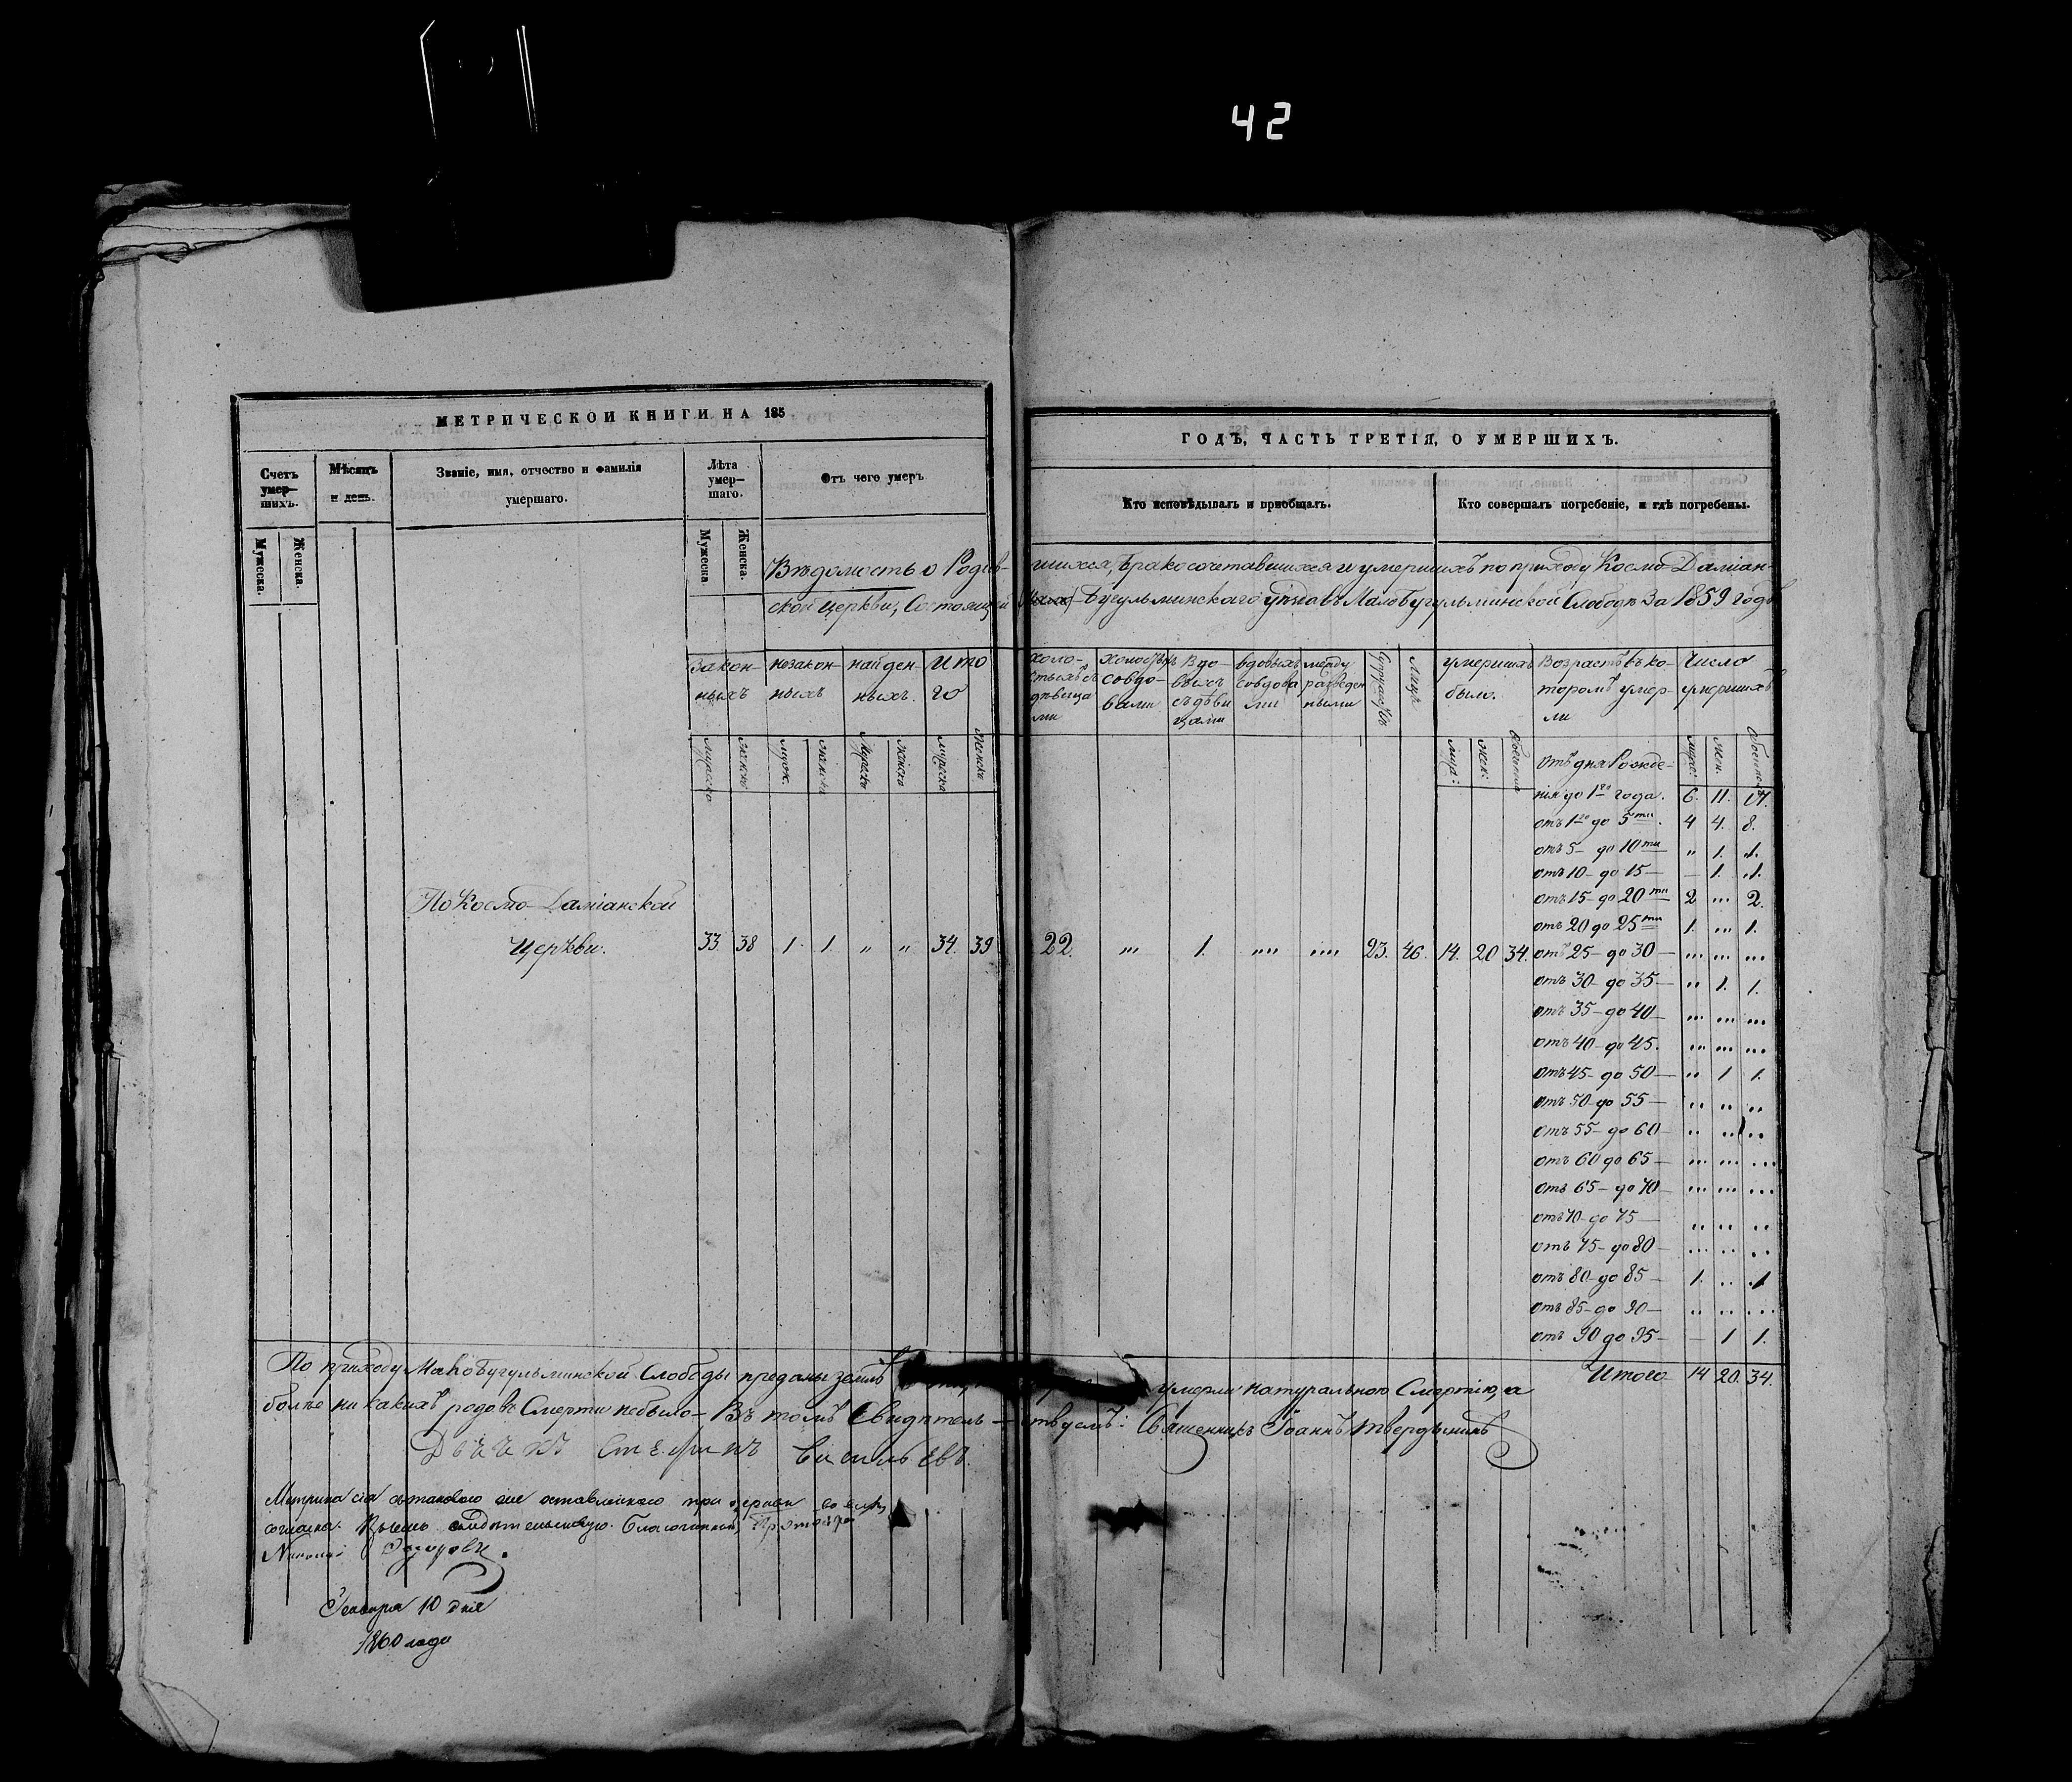 42
МЕТРИЧЕСКОЙ КНИГИ НА 185
ГОДЪ, ЧАСТЬ ТРЕТІЯ, О УМЕРШИХЪ.
Счетъ умер—шихъ.
Мужеска.
Женска.
Мѣсяцъ и день.
Званіе, имя, отчество и фамилія умершаго.
Лѣта умер—шаго.
Мужеска.
Женска.
Отъ чего умеръ
Кто исповѣдывалъ и пріобщалъ.
Кто совершалъ погребеніе, и гдѣ погребены.
Вѣдомость о Родив-шихся, бракосочетавшихся и умершихъ по приходу Космо-Даміан-
ской церкви, Состоящей Бугульминскаго уѣзда въ Мало Бугульминской Слободѣ За 1859 годъ
Закон-ныхъ
незакон-ныхъ
найден-ныхъ.
Ито го
холо-стыхъ съ дѣвица ми
холостыхъ со вдо-вами
Вдо-выхъ съ дѣви цами
вдовыхъ со вдова ми
между разведен ными
умершихъ было.
Возрастъ въ ко-торомъ умер-ли
Число умершихъ
Отъ дня Рожде-
нія до 1го года. 6. 11. 17.
отъ 1го до 5ти. 4 4. 8.
отъ 5- до 10ти „ 1. 1.
отъ 10- до 15— — 1. 1.
отъ 15- до 20ти 2 ... 2.
отъ 20 до 25ти 1. ... 1.
По Космо-Даміанской
Церкви. 33. 38 1. 1. „ „ 34. 39 22. „ 1. „„ „„ 23. 46. 14. 20 34. отъ 25- до 30— ... ... ...
отъ 30- до 35— .. 1. 1.
отъ 35- до 40— ... ... ...
отъ 40- до 45. ... ... ...
отъ 45- до 50— .. 1 1.
отъ 50- до 55— .. .. ..
отъ 55- до 60- .. .. ..
отъ 60 до 65— ... ... ...
отъ 65- до 70— ... ... ...
отъ 70- до 75— .. .. ..
отъ 75- до 80— ... .. ..
отъ 80- до 85— 1. .. 1
отъ 85- до 90— .. .. ...
отъ 90 до 95— — 1 1.
Итого 14 20. 34.
По приходу Мало Бугульминской Слободы преданы землѣ умерли натуральною Смертію, а
болѣе ни какихъ родовъ Смерти небыло— Въ томъ Свидѣтель-ствуемъ: Священникъ Іоаннъ Твердынинъ
Дьячикъ Стефанъ Васильевъ.
Метрика сія съ таковою же оставленною при церкви во всемъ
согласна. Благочинный
Николай
Генваря 10 дня
1860 года